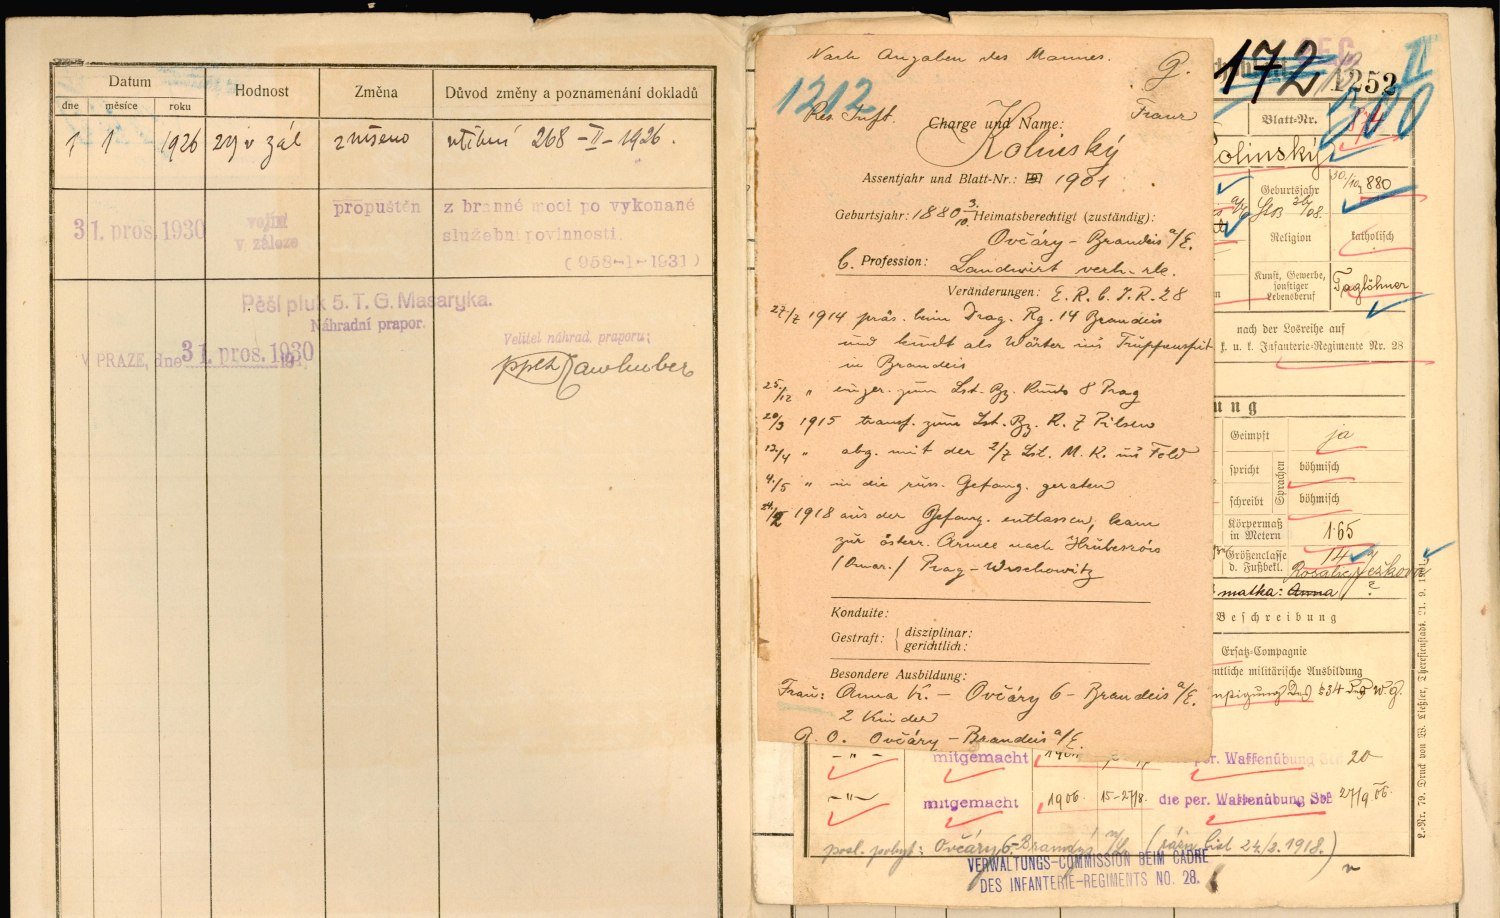 Datum
Hodnost
Změna
Důvod změny a poznamenání dokladů
dne
měsíce
roku
1 1 1926 zv zál zrušeno vtělení 268-II-1926.
31. pros. 1930
vojín
v záloze
propuštěn
z branné moci po vykonané
služební povinnosti.
(958-1-1931)
Pěší pluk 5. T. G. Masaryka.
Náhradní prapor.
V PRAZE, dne 31. pros. 1930
19
Velitel náhrad. praporu:
pplk
Nach Angaben des Mannes.
g.
1212
Res. Inft.
Charge und Name:
Franz
Kolinský
Assentjahr und Blatt-Nr.: 1901
Geburtsjahr: 1880 3./10. Heimatsberechtigt (zuständig):
Ovčáry - Brandeis a/E.
b. Profession: Landwirt verh. rk.
Veränderungen: E. R. b. I. R. 28
27/7 1914 präs. beim Drag. Rg. 14 Brandeis
und als Wärter ins Truppenspit
in Brandeis
25./12 " einger. zum Lst. Bz. Kmdo 8 Prag
20/3 1915 transf. zum Lst. Bz. K. 7 Pilsen
12/4 " abg. mit der 2/7 Lst. M. K. ins Feld
4/5 " in die russ. Gefang. geraten
24/2 1918 aus der Gefang. entlassen, kam
zur österr. Armee nach Hrubeszów
Prag-Wrschowitz
Konduite:
Gestraft: disziplinar:
gerichtlich:
Besondere Ausbildung:
Frau: Anna K. - Ovčáry 6 - Brandeis a/E.
2 Kinder
A. O. Ovčáry - Brandeis a/E
172
1252
II
Blatt-Nr.
olinský
Geburtsjahr
30./10. 880
Religion
katholisch
Kunst, Gewerbe,
sonstiger
Lebensberuf
Taglöhner
nach der Losreihe auf
k. u. k. Infanterie-Regimente Nr. 28
ung
Geimpft
ja
Sprachen
spricht
böhmisch
schreibt
böhmisch
Körpermaß
in Metern
1·65
Größenclasse
d. Fußbekl.
14
Rosalie Ježková
matka: Anna ?
Beschreibung
Ersatz-Compagnie
ntliche militärische Ausbildung
-"- mitgemacht per. Waffenübung 20
-"- mitgemacht 1906. 15-27/8. die per. Waffenübung Stb 27/9 06.
posl. pobyt: Ovčáry 6.- Brandýs n/L 24/2. 1918.)
VERWALTUNGS-COMMISSION BEIM CADRE
DES INFANTERIE-REGIMENTS NO. 28.
L.-Nr. 79. Druck von W. Ließler, Theresienstadt. 21. 9. 1901.